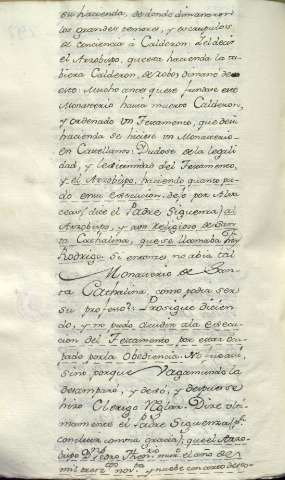 su hacienda, de donde dimanaron
las grandes temores, y escrupulos
de conciencia à Calderon. El decir
el Arzobispo, que esta hacienda la tu-
biera Calderon, de robos dimanò de
esto: Mucho antes que se fundase este
Monasterio havia muerto Calderon,
y ordenado un Testamento, que de su
hacienda se hiciese un Monasterio
en Castellanos: Dudose de la legali-
dad, y les del Testamento,
y el Arzobispo, haciendo quanto pu-
do en su execucion, dejò por Alva-
ceas, (dice el Padre Siguenza) al
Arzobispo, y a un Religioso de San-
ta Cathalina, que se llamaba Fray
Rodrigo. Si entonces no abia tal
Monasterio de San-
ta Cathalina, como podia ser
su profeso? Prosigue dicien-
do, y no pudo acudir à la execu-
cion del Testamento por estar ocu-
pado por la Obediencia. No fue asi,
sino porque Vagamundo la
desamparò, y dejò, y despues se
hizo Clerigo Reglar. Dize ulti-
mamente el Padre Siguenza (pa
concluir con mas gracia) que el Arzo-
bispo Dn. Pedro Thenorio, muriò el año de
mil trescientos noventa y nueve con harto deseo